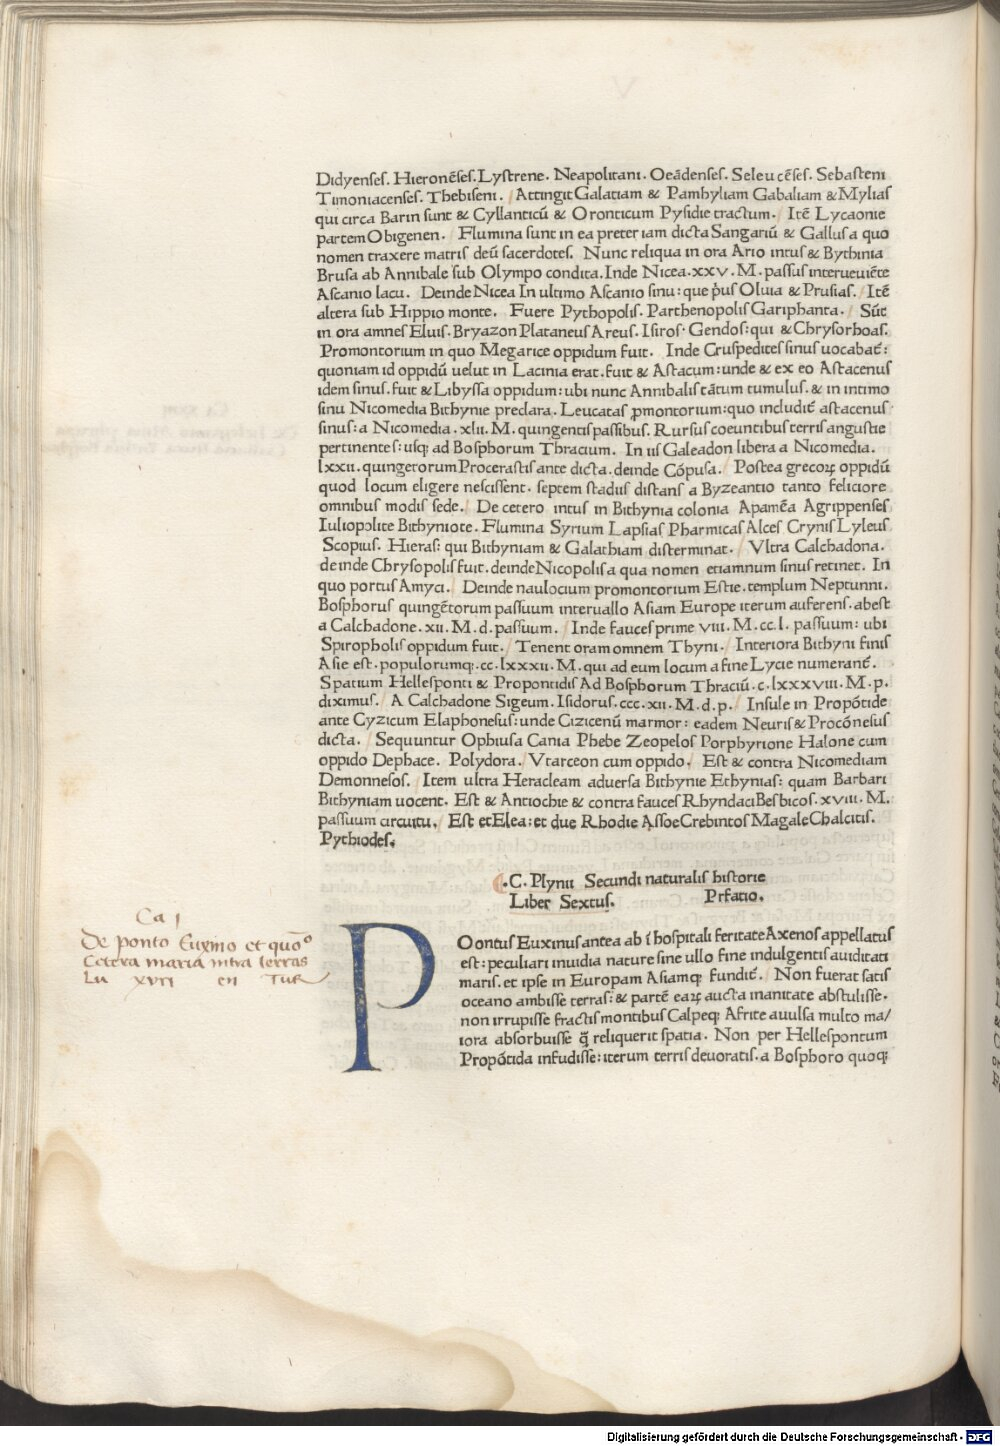 Didyenses. Hieronēses. Lystrene. Neapolitani. Oeādenses. Seleucēses. Sebasteni
Timoniacenses. Thebiseni. / Attingit Galatiam & Pamhyliam Gabaliam & Mylias
qui circa Barin sunt & Cyllanticū & Oronticum Pysidie tractum. / Itē Lycaonie
partem Obigenen. / Flumina sunt in ea preter iam dicta Sangariū & Gallus a quo
nomen traxere matris deū sacerdotes. Nunc reliqua in ora Ario intus & Bythinia
Brusa ab Annibale sub Olympo condita. Inde Nicea .xxv. M. passus interueniēte
Ascanio lacu. Deinde Nicea In ultimo Ascanio sinu: que p̄us Oluia & Prusias. / Itē
altera sub Hippio monte. Fuere Pythopolis. Parthenopolis Gariphanta. / Sūt
in ora amnes Eluis. Bryazon Plataneus Areus. Isiros. Gendos: qui & Chrysorhoas.
Promontorium in quo Megarice oppidum fuit. Inde Cruspedites sinus uocabat̄:
quoniam id oppidū uelut in Lacinia erat. fuit & Astacum: unde & ex eo Astacenus
idem sinus. fuit & Libyssa oppidum: ubi nunc Annibalis tātum tumulus. & in intimo
sinu Nicomedia Bithynie preclara. Leucatas ꝓmontorium: quo includit̄ astacenus
sinus: a Nicomedia .xlii. M. quingentis passibus. Rursus coeuntibus terris angustie
pertinentes: usq; ad Bosphorum Thracium. In iis Galeadon libera a Nicomedia.
lxxii. quingetorum Procerastis ante dicta. deinde Cōpusa. / Postea grecoꝝ oppidū
quod locum eligere nescissent. septem stadiis distans a Byzeantio tanto feliciore
omnibus modis sede. / De cetero intus in Bithynia colonia Apamēa Agrippenses
Iuliopolite Bithyniote. Flumina Syrium Lapsias Pharmicas Alces Crynis Lyleus
Scopius. Hieras: qui Bithyniam & Galathiam disterminat. / Vltra Calchadona.
deinde Chrysopolis fuit. deinde Nicopolis a qua nomen etiamnum sinus retinet. In
quo portus Amyci. / Deinde naulocium promontorium Estie. templum Neptunni.
Bosphorus quingētorum passuum interuallo Asiam Europe iterum auferens. abest
a Calchadone .xii. M. d. passuum. / Inde fauces prime viii. M. cc. l. passuum: ubi
Spiropholis oppidum fuit. / Tenent oram omnem Thyni. / Interiora Bithyni finis
Asie est. populorumq; .cc. lxxxii. M. qui ad eum locum a fine Lycie numerant̄.
Spatium Hellesponti & Propontidis Ad Bosphorum Thraciū .c. lxxxviii. M. p.
diximus. / A Calchadone Sigeum. Isidorus. ccc. xii. M. d. p. / Insule in Propōtide
ante Cyzicum Elaphonesus: unde Cizicenū marmor: eadem Neuris & Procōnesus
dicta. / Sequuntur Ophiusa Cania Phebe Zeopelos Porphyrione Halone cum
oppido Dephace. Polydora. / Vtarceon cum oppido. / Est & contra Nicomediam
Demonnesos. / Item ultra Heracleam aduersa Bithynie Ethynias: quam Barbari
Bithyniam uocent. Est & Antiochie & contra fauces Rhyndaci Besbicos. xviii. M.
passuum circuitu. / Est et Elea: et due Rhodie Assoe Crebintos Magale Chalcitis.
Pythiodes.
.C. Plynii Secundi naturalis historie
Liber Sextus. Prfatio.
Ca j
De ponto Euxino et quōo
Cetera maria intra terras
Lu xvri en Tur
P Oontus Euxinus antea ab ī hospitali feritate Axenos appellatus
est: peculiari inuidia nature sine ullo fine indulgentis auiditati
maris. et ipse in Europam Asiamq; fundit̄. / Non fuerat satis
oceano ambisse terras: & partē eaꝝ aucta inanitate abstulisse.
non irrupisse fractis montibus Calpeq; Afrite auulsa multo ma/
iora absorbuisse q̄ reliquerit spatia. Non per Hellespontum
Propōtida infudisse: iterum terris deuoratis. a Bosphoro quoq;
Digitalisierung gefördert durch die Deutsche Forschungsgemeinschaft - DFG